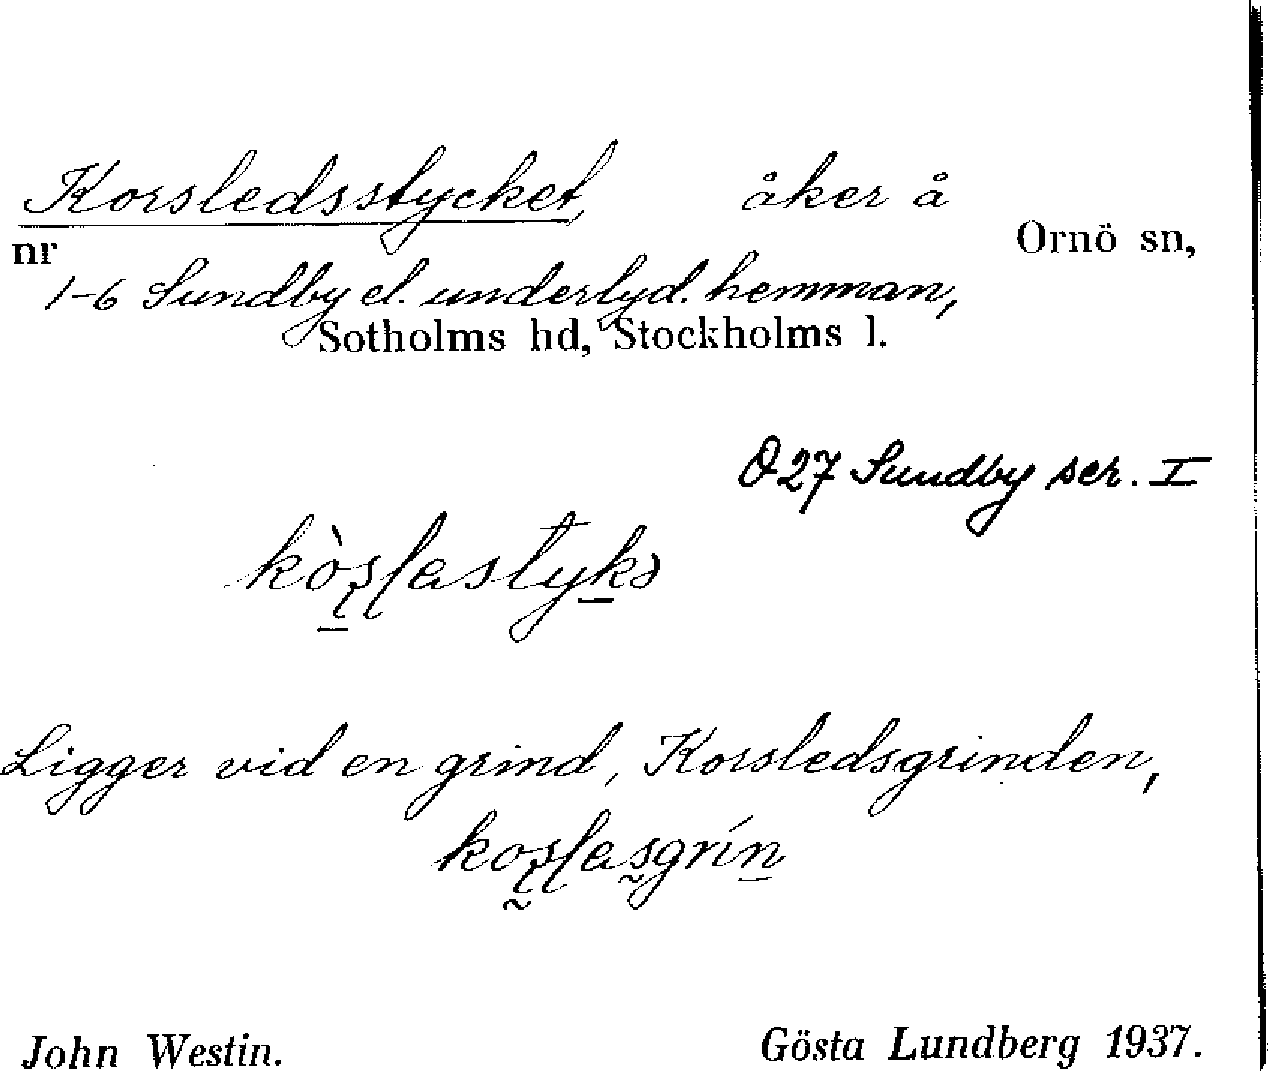 Korsledsstycket, åker å
nr Ornö sn,
1-6 Sundby el. underlyd. hemman,
Sotholms hd, Stockholms l.
O 27 Sundby ser. I
Ligger vid en grind, Korsledsgrinden,
John Westin. Gösta Lundberg 1937.